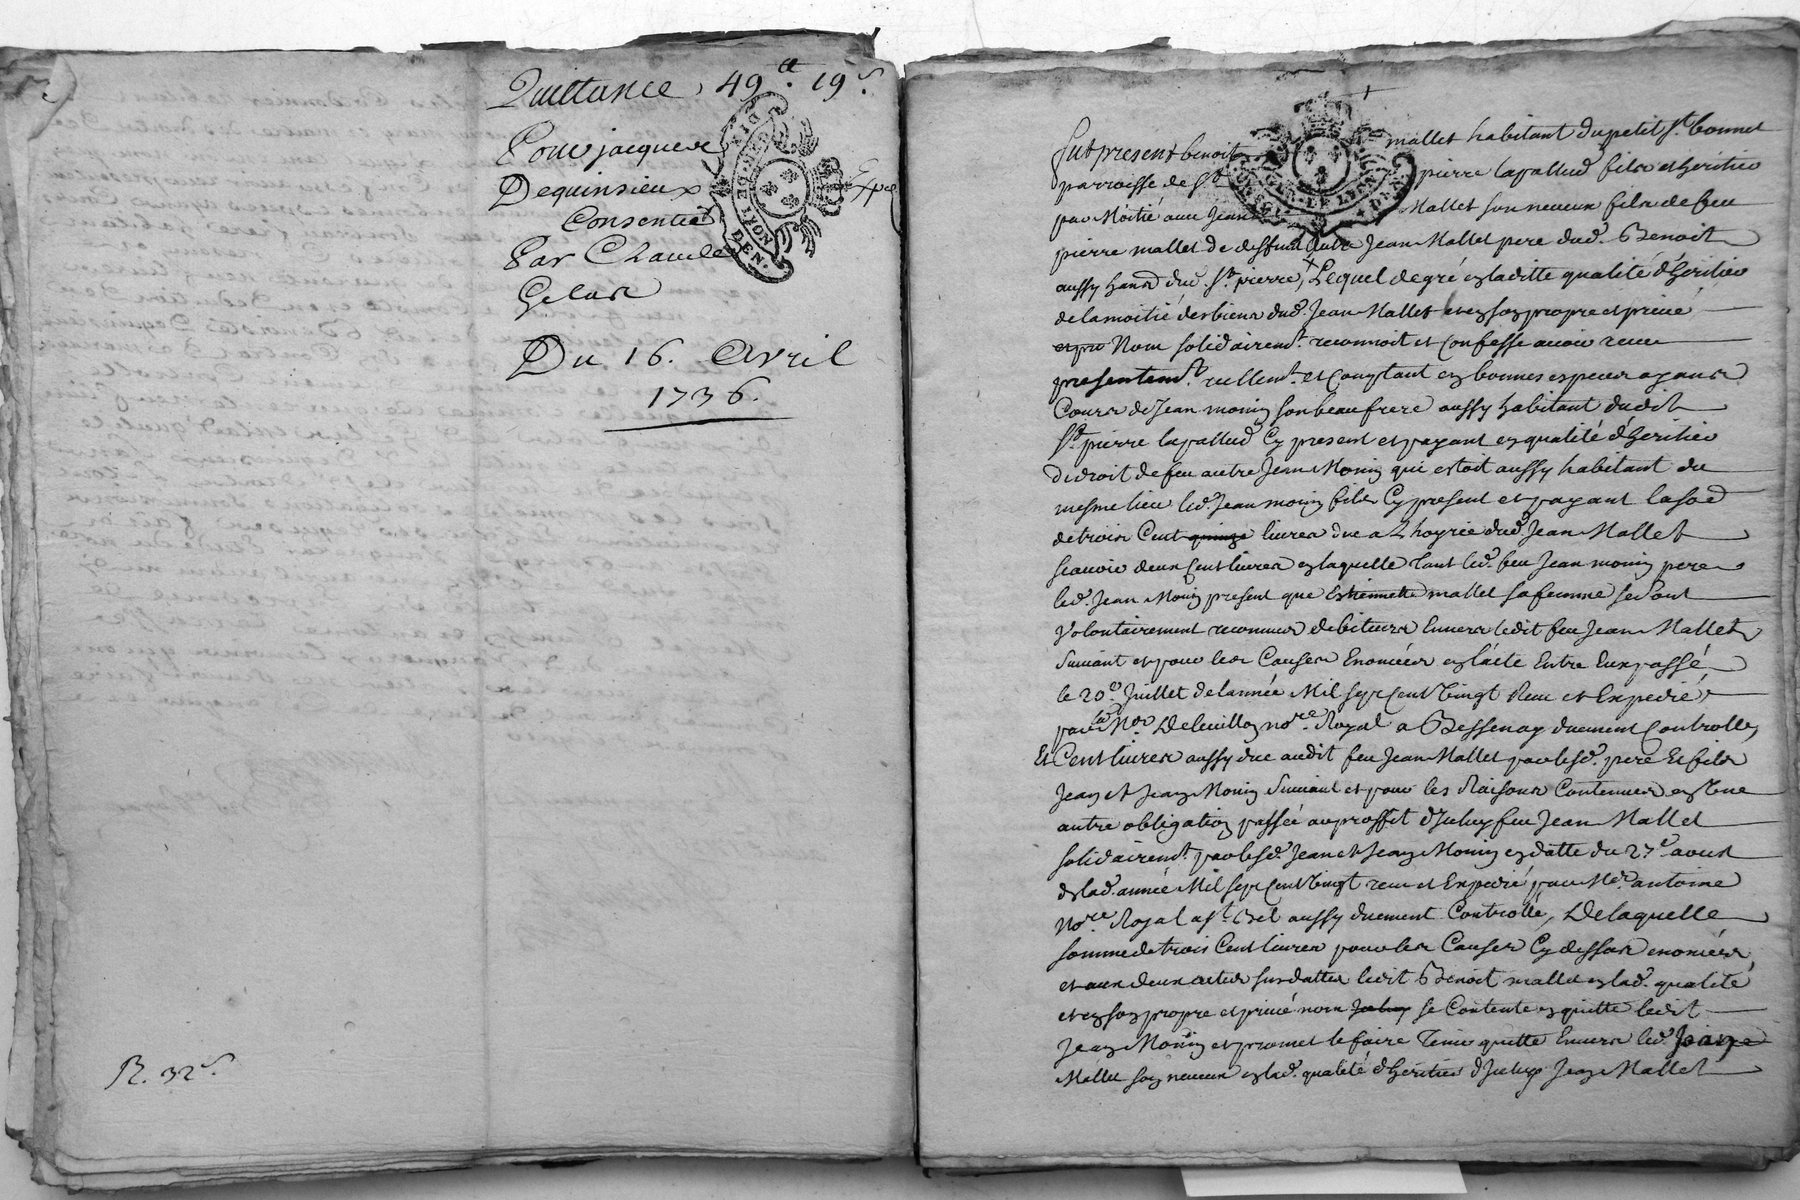 Quittance, 49ᵗᵗ. 19ˢ.
Pour jacques
Dequinsieux
Consentie
Par Claude
Gelas
Du 16. Avril
1736.
Expé
R. 32ˢ.
GEN. DE LYON
DEN.
GEN. DE LYON
Fut present benoit mallet habitant du petit Sᵗ bonnet
parroisse de Sᵗ pierre lapallud fils et heritier
par Moitié avec Jean Mallet son neveux fils de feu
pierre mallet de deffunt autre Jean Mallet pere dud. Benoit
aussy hanᵗ dud. Sᵗ pierre, Lequel de gré en laditte qualité d'heritier
de la moitié des biens dud. Jean Mallet et en son propre et privé
et pri Nom solidairemᵗ. reconnoit et confesse avoir receu
presentemᵗ. reellemᵗ. et comptant en bonnes especes ayans
Cours de Jean monin son beau frere aussy habitant dudit
Sᵗ pierre lapallud Cy present et payant en qualité d'heritier
de droit de feu autre Jean Monin qui estoit aussy habitant du
mesme lieu led. Jean monin fils Cy present et payant la soᵉ
de trois Cent quinze livres due a L'hoyrie dud. Jean Mallet
scavoir deux Cent livres en laquelle tant led. feu Jean monin pere
led. Jean Monin present que Estiennette mallet sa femme se sont
volontairement reconnus debiteurs Envers ledit feu Jean Mallet
Suivant et pour les Causes Enoncées en l'acte Entre Eux passé
le 20ᵉ Juillet de lannée Mil sept Cent vingt Receu et Expedié
par Mᵉ Deleuillon noʳᵉ Royal a Bessenay duement Controllé
Et Cent livres aussy due audit feu Jean Mallet par lesd. pere Et fils
Jean et Jean Monin Suivant et pour les Raisons Contenues en Une
autre obligation passée au proffit d'Iceluy feu Jean Mallet
solidairemᵗ. par lesd. Jean et Jean Monin en datte du 27ᵉ aoust
de lad. année Mil sept Cent Vingt receu et Expedié par Mᵉ antoine
Noʳᵉ Royal a Sᵗ Bel aussy duement Controllé, De laquelle
somme de trois Cent livres pour les Causes Cy dessus enoncées
et aux deux actes susdattes ledit Benoit mallet en lad. qualité
et en son propre et privé nom se Contente en quitte ledit
Jean Monin et promet le faire Tenir quitte Envers led. Jean
Mallet son neveux en lad. qualité d'heritier d'Iceluy Jean Mallet